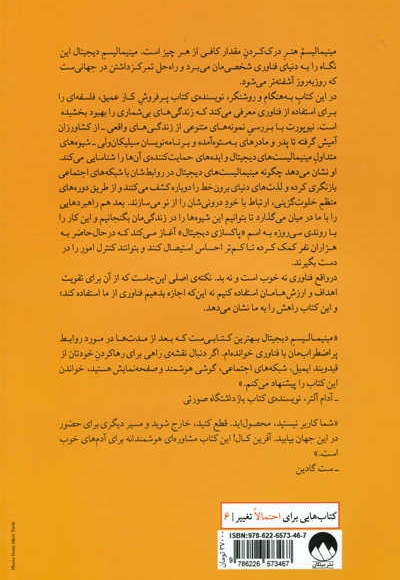 مینیمالیسمْ هنرِ درک‌کردنِ مقدار کافی از هر چیز است. مینیمالیسم دیجیتال این
نگاه را به دنیای فناوری شخصی‌مان می‌برد و راه‌حل تمرکزداشتن در جهانی‌ست
که روزبه‌روز آشفته‌تر می‌شود.
در این کتابِ به‌هنگام و روشنگر، نویسنده‌ی کتاب پرفروشِ کار عمیق، فلسفه‌ای را
برای استفاده از فناوری معرفی می‌کند که زندگی‌های بی‌شماری را بهبود بخشیده
است. نیوپورت با بررسیِ نمونه‌های متنوعی از زندگی‌های واقعی ـ از کشاورزان
آمیش گرفته تا پدر و مادرهای به‌ستوه‌آمده و برنامه‌نویسان سیلیکان‌ولی ـ شیوه‌های
متداول مینیمالیست‌های دیجیتال و ایده‌های حمایت‌کننده‌ی آن‌ها را شناسایی می‌کند.
او نشان می‌دهد چگونه مینیمالیست‌های دیجیتال در روابط‌شان با شبکه‌های اجتماعی
بازنگری کرده و لذت‌های دنیای برون‌خط را دوباره کشف می‌کنند و از طریق دوره‌های
منظم خلوت‌گزینی، ارتباط با خودِ درونی‌شان را از نو می‌سازند. بعد هم راهبردهایی
را با ما در میان می‌گذارد تا بتوانیم این شیوه‌ها را در زندگی‌مان بگنجانیم و این کار را
با روندی سی‌روزه به اسم «پاکسازی دیجیتال» آغاز می‌کند که در حال‌حاضر به
هزاران نفر کمک کرده تا کم‌تر احساس استیصال کنند و بتوانند کنترل امور را در
دست بگیرند.
درواقع فناوری نه خوب است و نه بد. نکته‌ی اصلی این‌جاست که از آن برای تقویت
اهداف و ارزش‌هامان استفاده کنیم نه این‌که اجازه بدهیم فناوری از ما استفاده کند؛ و
این کتاب راهش را به ما نشان می‌دهد.
«مینیمالیسم دیجیتال بهترین کتابی‌ست که بعد از مدت‌ها در مورد روابط
پراضطراب‌مان با فناوری خوانده‌ام. اگر دنبال نقشه‌ی راهی برای رهاکردن خودتان از
قیدوبند ایمیل، شبکه‌های اجتماعی، گوشی هوشمند و صفحه‌نمایش هستید، خواندن
این کتاب را پیشنهاد می‌کنم.»
ـ آدام آلتر، نویسنده‌ی کتاب بازداشتگاه صورتی
«شما کاربر نیستید، محصول‌اید. قطع کنید، خارج شوید و مسیر دیگری برای حضور
در این جهان بیابید. آفرین کال! این کتاب مشاوره‌ای هوشمندانه برای آدم‌های خوب
است.»
ـ ست گادین
کتاب‌هایی برای احتمالاً تغییر | ۶
ISBN: 978-622-6573-46-7
9 786226 573467
۳۷۰۰۰ تومان
نشر میلکان